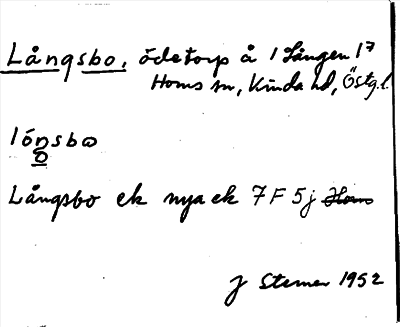 Långsbo, ödetorp å 1 Lången 17
Horns sn, Kinda hd, Östg.l.
lóṇsbɷ
o
Långsbo ek nya ek 7 F 5 j Horn
J Sterner 1952